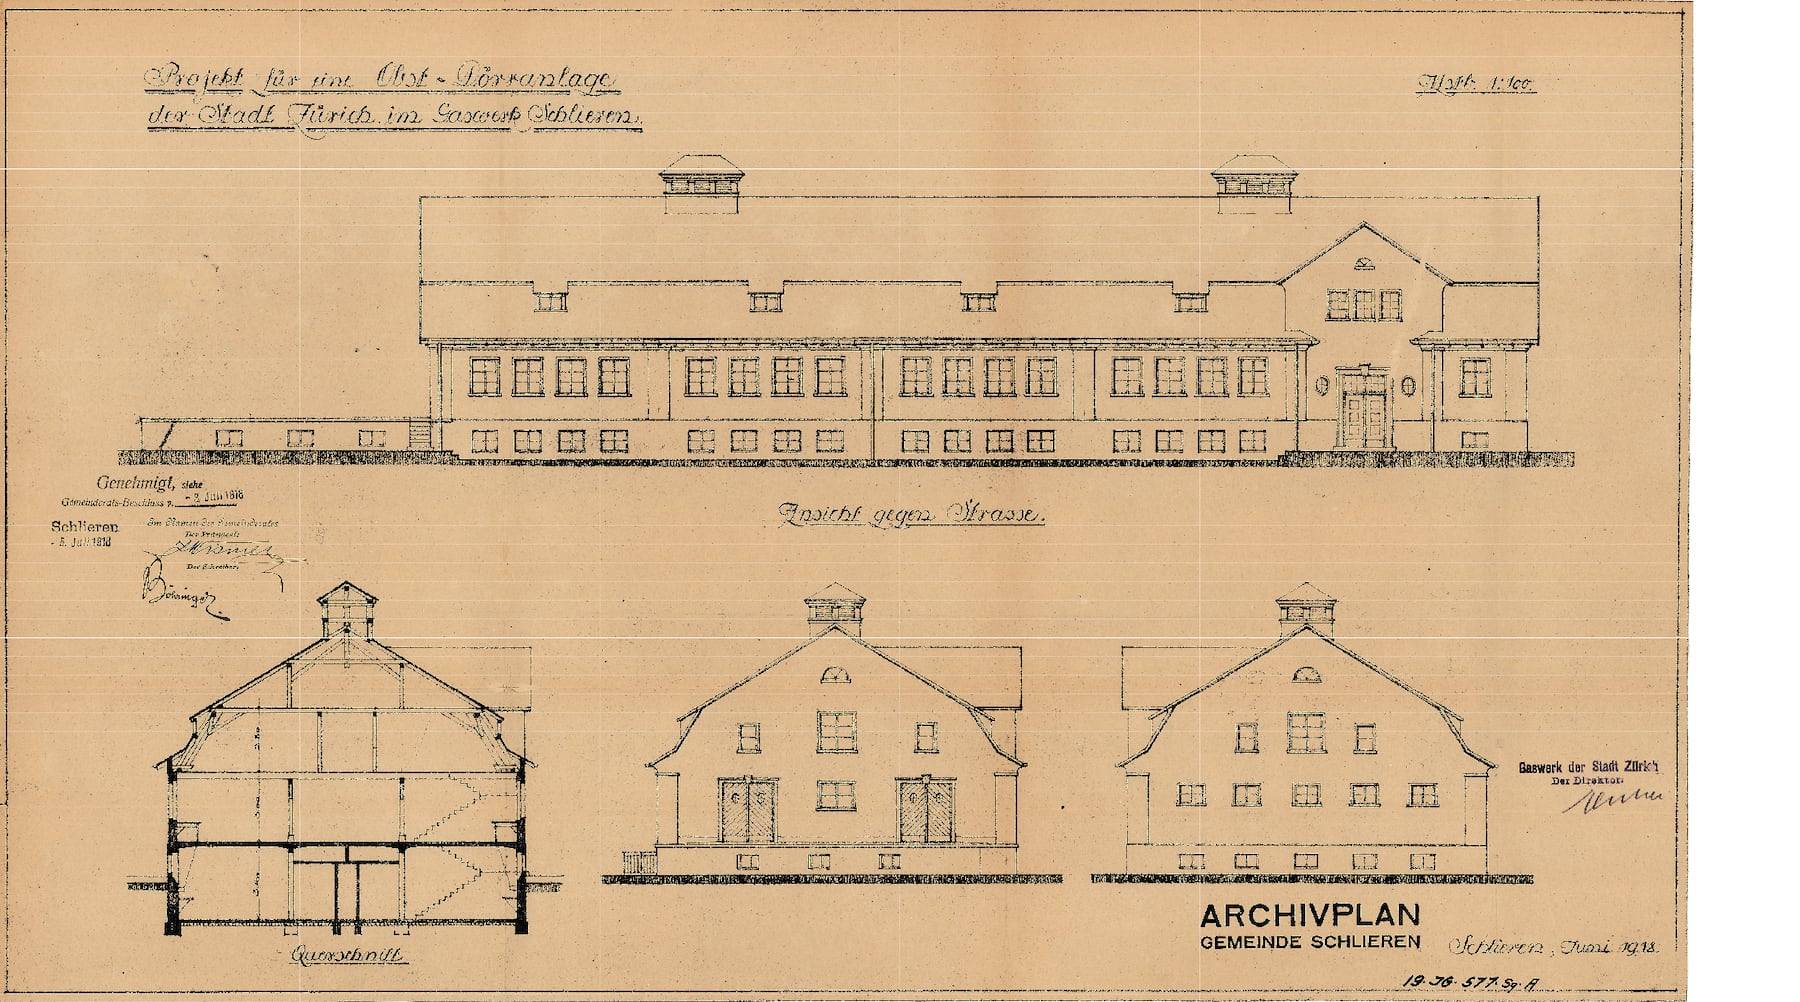 Projekt für eine Obst-Dörranlage
der Stadt Zürich im Gaswerk Schlieren.
Mstb. 1:100.
Genehmigt, siehe
Gemeinderats-Beschluss v. - 2. Juli 1918
Schlieren
- 5. Juli 1918
Im Namen des Gemeinderates
Der Präsident:
Der Schreiber:
Ansicht gegen Strasse.
Querschnitt
Gaswerk der Stadt Zürich
Der Direktor:
ARCHIVPLAN
GEMEINDE SCHLIEREN
Schlieren, Juni 1918.
19. JG. 577. Sg. A